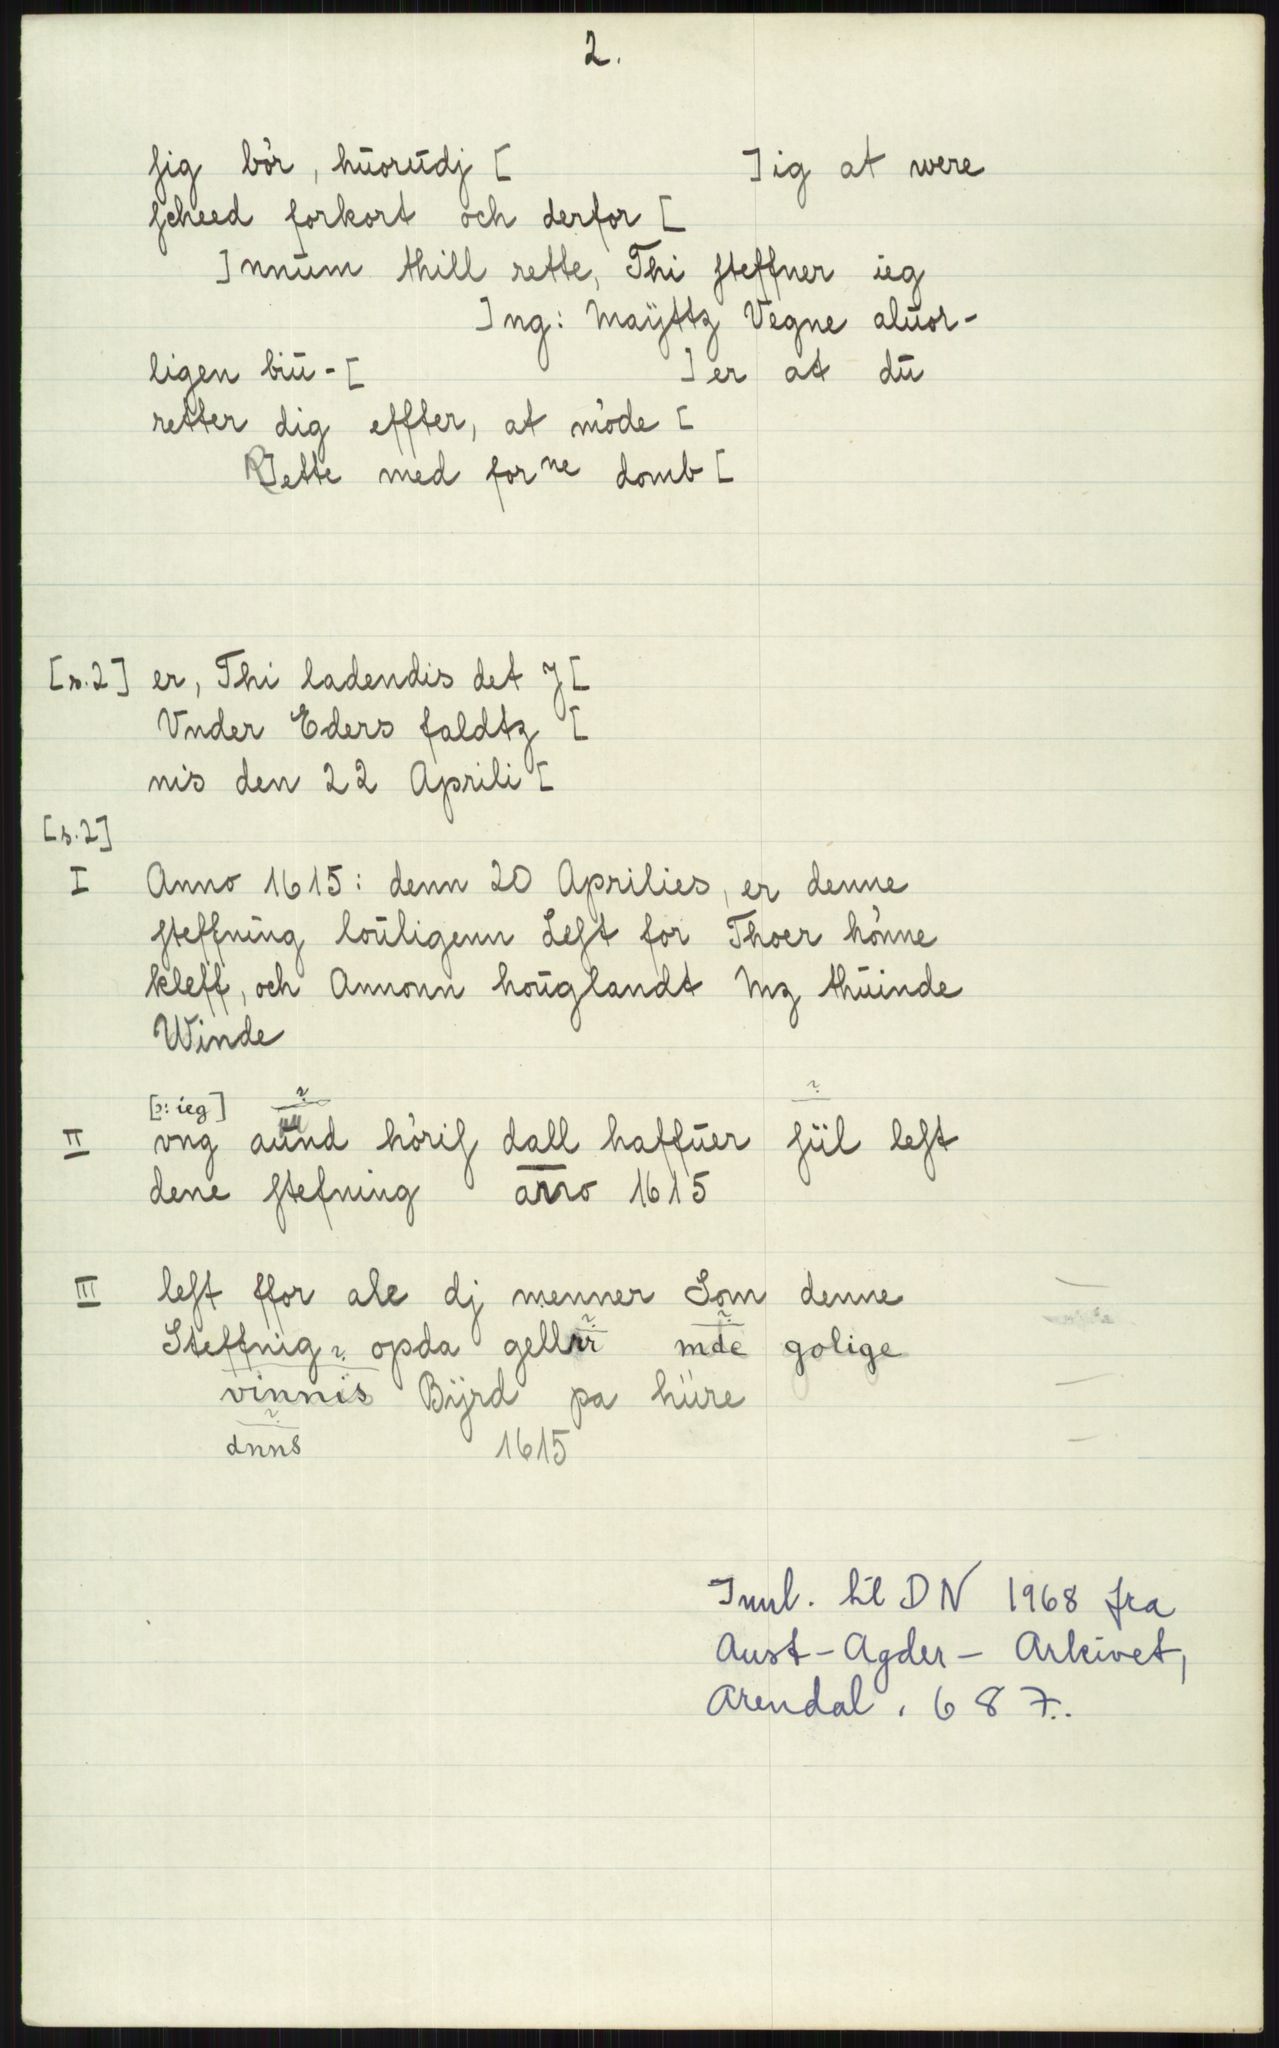 2.
ſig bòr, hūorūdj [ ] ig at were
ſcheed forkort och derfor [
] nnūm thill rette, Thi ſteffner ieg
] ng: Maÿttz Vegne alūor-
ligen biū-[ ] er at dū
retter dig effter, at mòde [
R]ette med forne domb [
[s.2] er, Thi ladendis det J [
Vnder Eders faldtz [
nis den 22 Aprili [
[s.2]
I Anno 1615: denn 20 Aprilies, er denne
ſteffning loūligenn Leſt for Thoer hònne
kleff, och Annonn hoūglandt Mz thūinde
Winde
[ɔ: ieg] ? ?
II vng aūnd hòriſ dall haffūer ſūl leſt
dene ſtefning anno 1615
III leſt ffor ale dj menner Som denne
Steffnig ? opda gellrr mde golige
vinnis Bÿrd pa hūre
dnns 1615
Innl. til DN 1968 fra
Aust-Agder-Arkivet,
Arendal. 687.